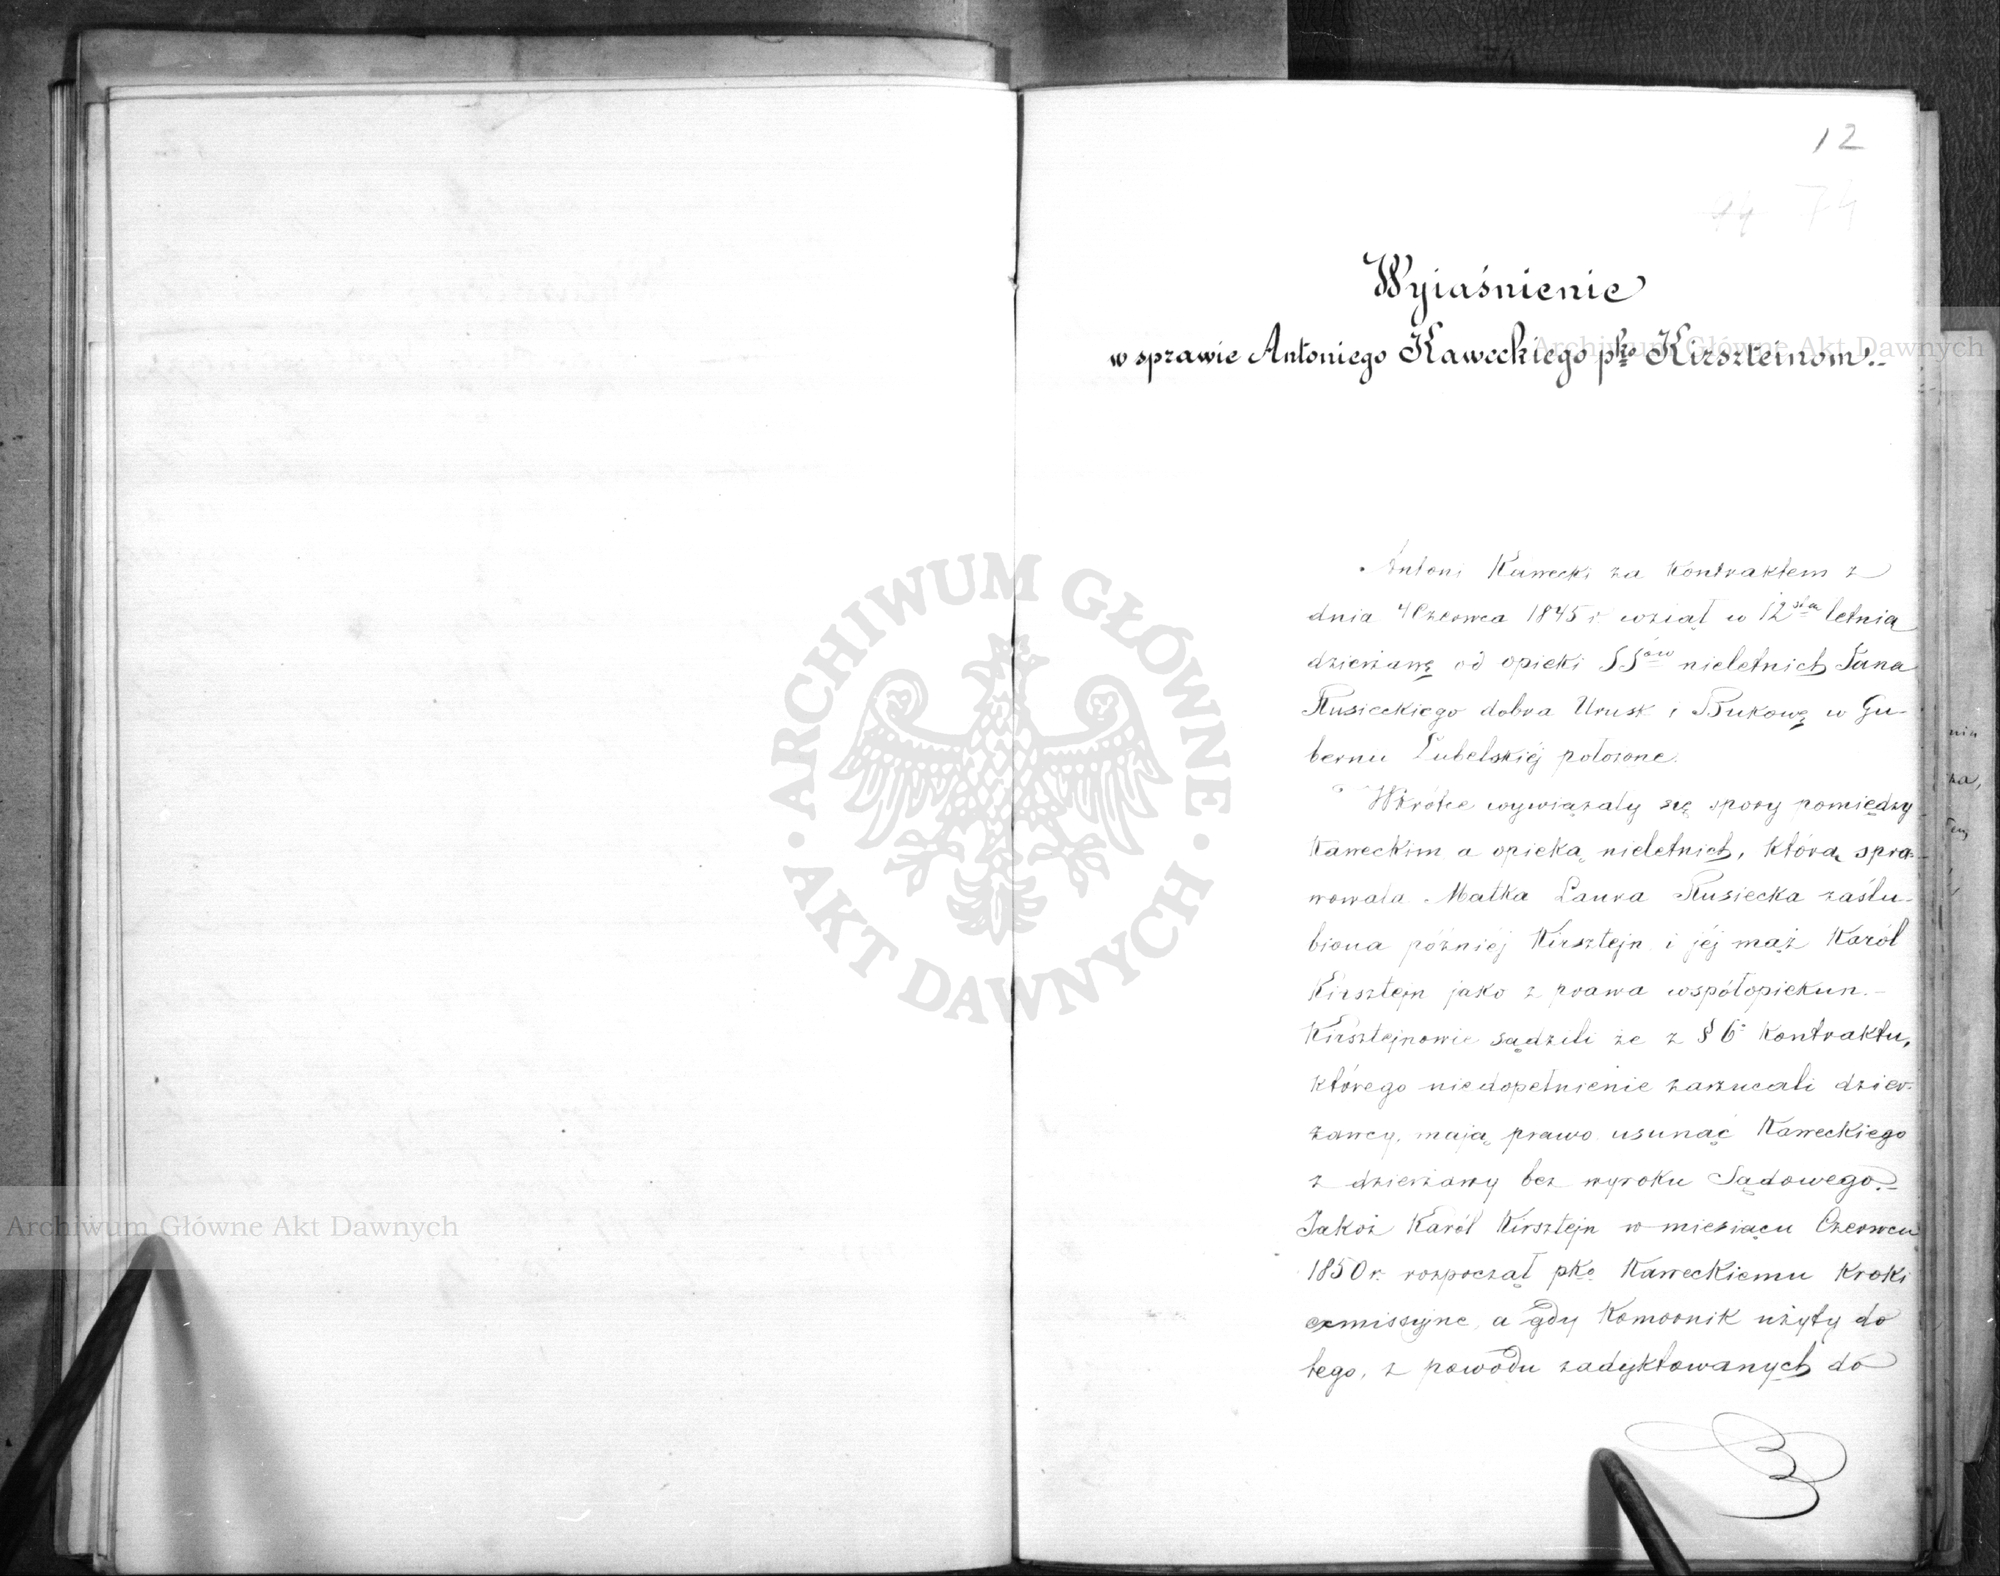 12
44 74
Wyjaśnienie
w sprawie Antoniego Kaweckiego pko Kirszteinom.
Antoni Kawecki za kontraktem z
dnia 4 Czerwca 1845 r. wziął w 12sto letnią
dzierżawę od opieki SSów nieletnich Jana
Rusieckiego dobra Urusk i Bukowę w Gu-
bernii Lubelskiéj położone.
Wkrótce wywiązały się spory pomiędzy
Kaweckim a opieką nieletnich, którą spra-
wowała Matka Laura Rusiecka zaślu-
biona późniéj Kirsztejn i jéj mąż Karól
Kirsztejn jako z prawa współopiekun.-
Kirsztejnowie sądzili że z § 6 Kontraktu,
którego niedopełnienie zarzucali dzier-
żawcy, mają prawo usunąć Kaweckiego
z dzierżawy bez wyroku Sądowego.-
Jakoż Karól Kirsztejn w miesiącu Czerwcu
1850 r. rozpoczął pko Kaweckiemu kroki
exmissyjne, a gdy Komornik użyty do
tego, z powodu zadyktowanych do
ARCHIWUM GŁÓWNE AKT DAWNYCH
Archiwum Główne Akt Dawnych
Archiwum Główne Akt Dawnych